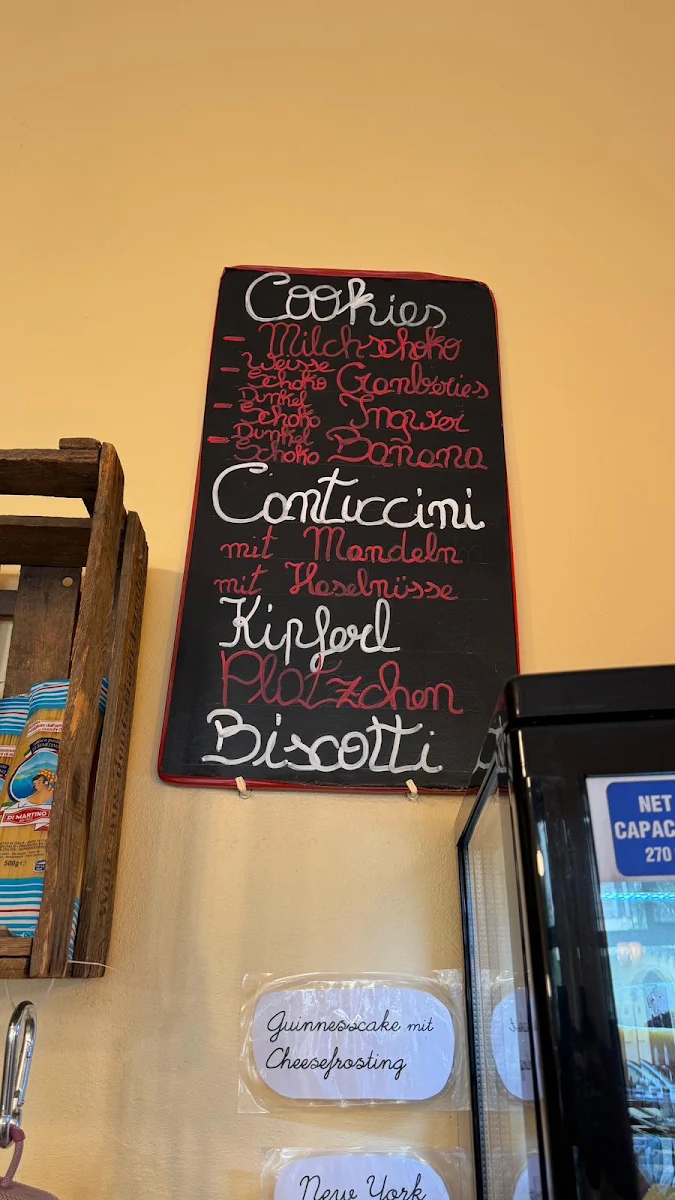 Cookies
- Milchschoko
- Weisse Schoko Cranberies
- Dunkel Schoko Ingwer
- Dunkel Schoko Banana
Cantuccini
mit Mandeln
mit Haselnüsse
Kipferl
Plätzchen
Biscotti
DI MARTINO
500g e
NET
CAPAC
270
Guinnesscake mit
Cheesefrosting
New York